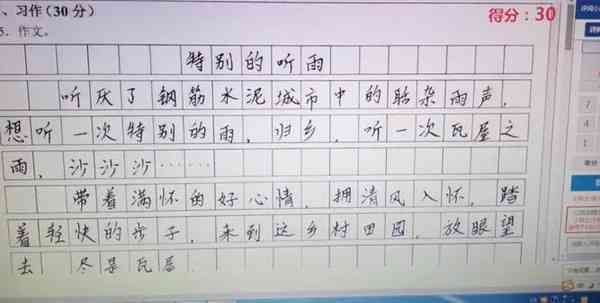 、习作(30分)
得分：30
5. 作文。
特别的听雨
听厌了钢筋水泥城市中的聒杂雨声，
想听一次特别的雨，归乡，听一次瓦屋之
雨，沙沙沙……
带着满怀的好心情，拥清风入怀，踏
着轻快的步子，来到这乡村田园，放眼望
去 尽是瓦屋